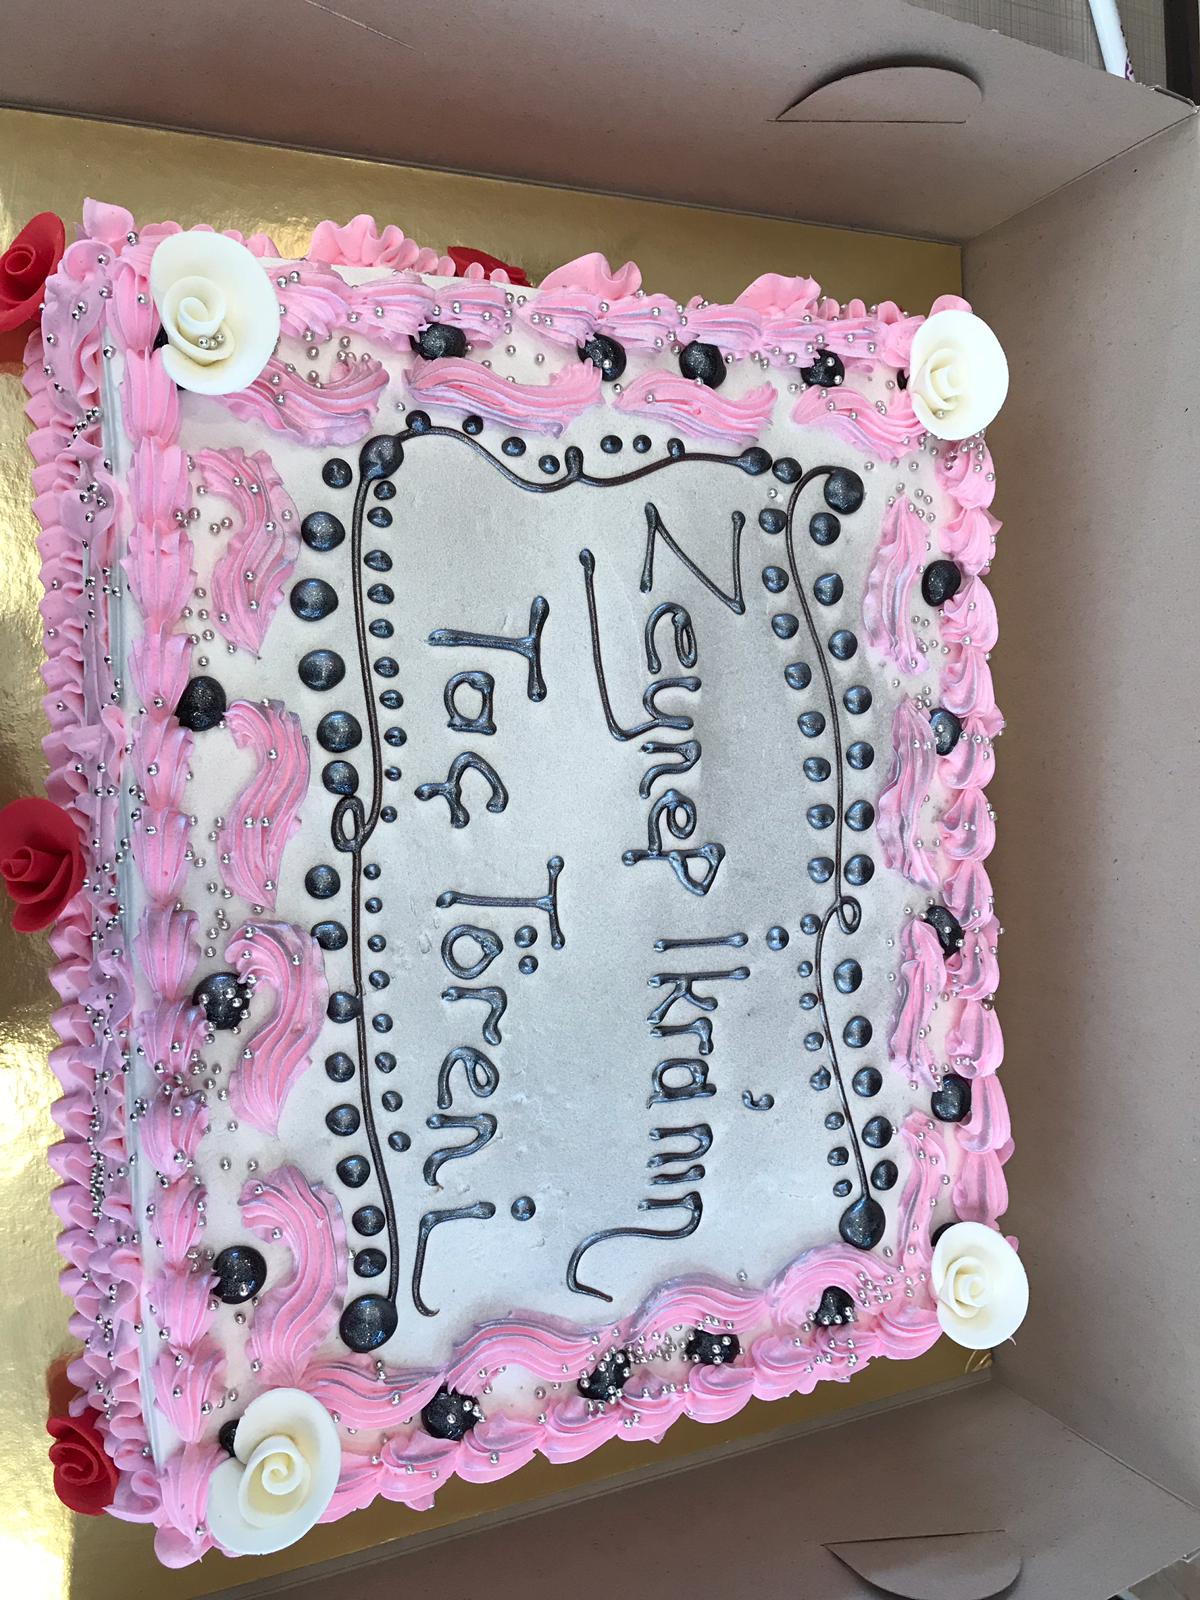 Zeynep İkra'nın
Taç Töreni